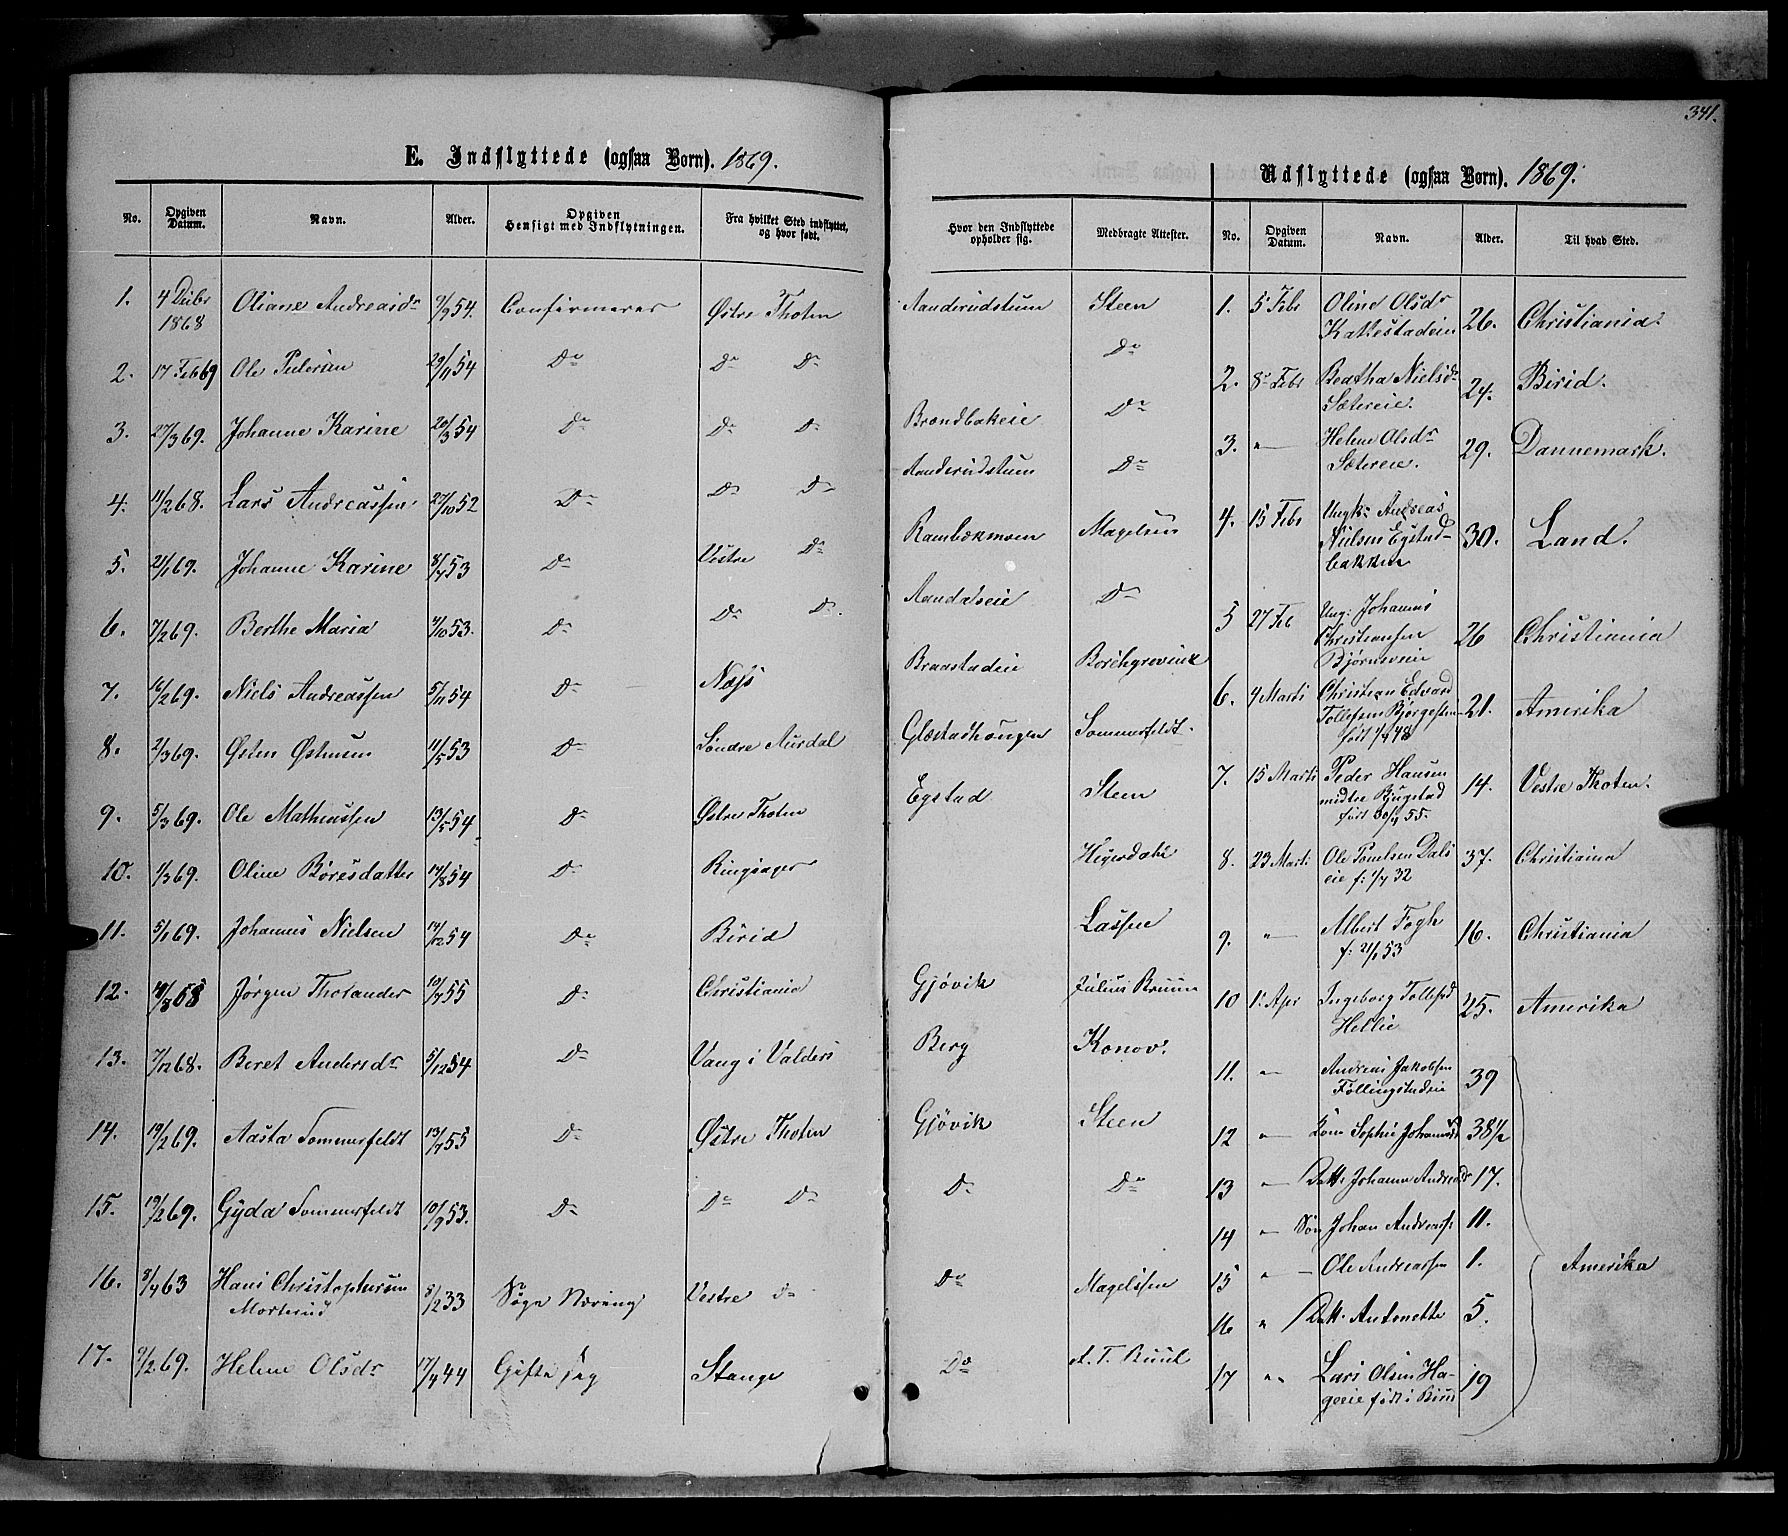 341.
E. Indflyttede (ogsaa Børn). 1869.
No. Opgiven Datum. Navn. Alder. Opgiven Hensigt med Indflytningen. Fra hvilket Sted indflyttet, og hvor født.
1. 4 Decbr 1868 Oliane Andreasdr 7/9 54. Confirmeres Østre Thoten
2. 17 Feb 69 Ole 29/11 54 Do Do Do
3. 27/3 69. Johanne Karine 20/3 54 Do Do Do
4. 11/2 68. Lars Andreassen 27/10 52 Do Do Do
5. 2/1 69. Johanne Karine 8/7 53 Do Vestre Do
6. 7/2 69. Berthe Maria 9/10 53. Do Do Do
7. 16/2 69. Niels Andreassen 5/11 54 Do Næs
8. 2/3 69. Østen Østensen 11/5 53 Do Søndre Aurdal
9. 5/3 69. Ole Mathiassen 13/5 54 Do Østre Thoten
10. 1/3 69. Oline Børesdatter 14/8 54 Do Ringsager
11. 5/1 69. Johannes Nielsen 14/12 54 Do Birid
12. Jørgen Tholander 10/7 55 Do Christiania
13. 7/12 68. Beret Andersdr 5/12 54 Do Vang i Valders
14. 19/2 69. Aasta Sommerfeldt 13/7 55 Do Østre Thoten
15. 19/2 69. Gyda Sommerfeldt 10/9 53. Do Do Do
16. 3/4 63 Hans Christophersen Morterud 5/2 33 Søge Næring Vestre do
17. 9/2 69. Helene Olsdr 17/4 44 Gifte sig Stange
Hvor den Indflyttede opholder sig. Medbragte Attester.
Aanderudstuen Steen
Do
Brændbakeie Do
Aanderudstuen Do
Rambækmoen Magelsen
Aandalseie Do
Braastadeie Borchgrevink
Glæstadhøugen Sommerfeldt.
Egstad Steen
Hegerdahl
Lassen
Gjøvik Julius Bruun
Berg Konow.
Gjøvik Steen
Do Do
Do Magelssen
Do A. T. Ruud
Udflyttede (ogsaa Børn). 1869.
No. Opgiven Datum. Navn. Alder. Til hvad Sted.
1. 5 Febr Oline Olsdr
Kattestadeie 26. Christiania.
2. 8 Febr Beatha Nielsdr
Sætereie. 24. Birid.
3. " — Helene Olsdr
Sætereie. 29. Dannemark.
4. 15 Febr Ungk: Andreas
Nielsen Egstad-
bakken 30. Land.
5 27 Feb Ung: Johannes
Christiansen
Bjørnsveie 26 Christiania
6. 4 Marts Christian Edvard
Tollefsen
født 1/4 48 21. Amerika
7. 15 Marts Peder Hansen
midtre Bjugstad
født 30/4 55. 14. Vestre Thoten.
8. 23 Marts Ole Poulsen Dals
eie f: 1/7 32 37. Christiania
9. " — Albert Fogh
f: 21/1 53 16. Christiania
10 1. Apr Ingeborg Tollefsd
Hellie 25. Amerika
11. " — Andreas Jakobsen
Føllingstadeie 39
12 " — Kone Sophie Johannesd 38½
13 " — Datt. Johanne Andreasdr 17.
14 " — Søn Johan Andreass. 11.
15 " — Ole Andreassen 1. Amerika
16 " Datt. Antonette 5.
17 " " Lars Olsen Ha-
geeie født i Biri 19